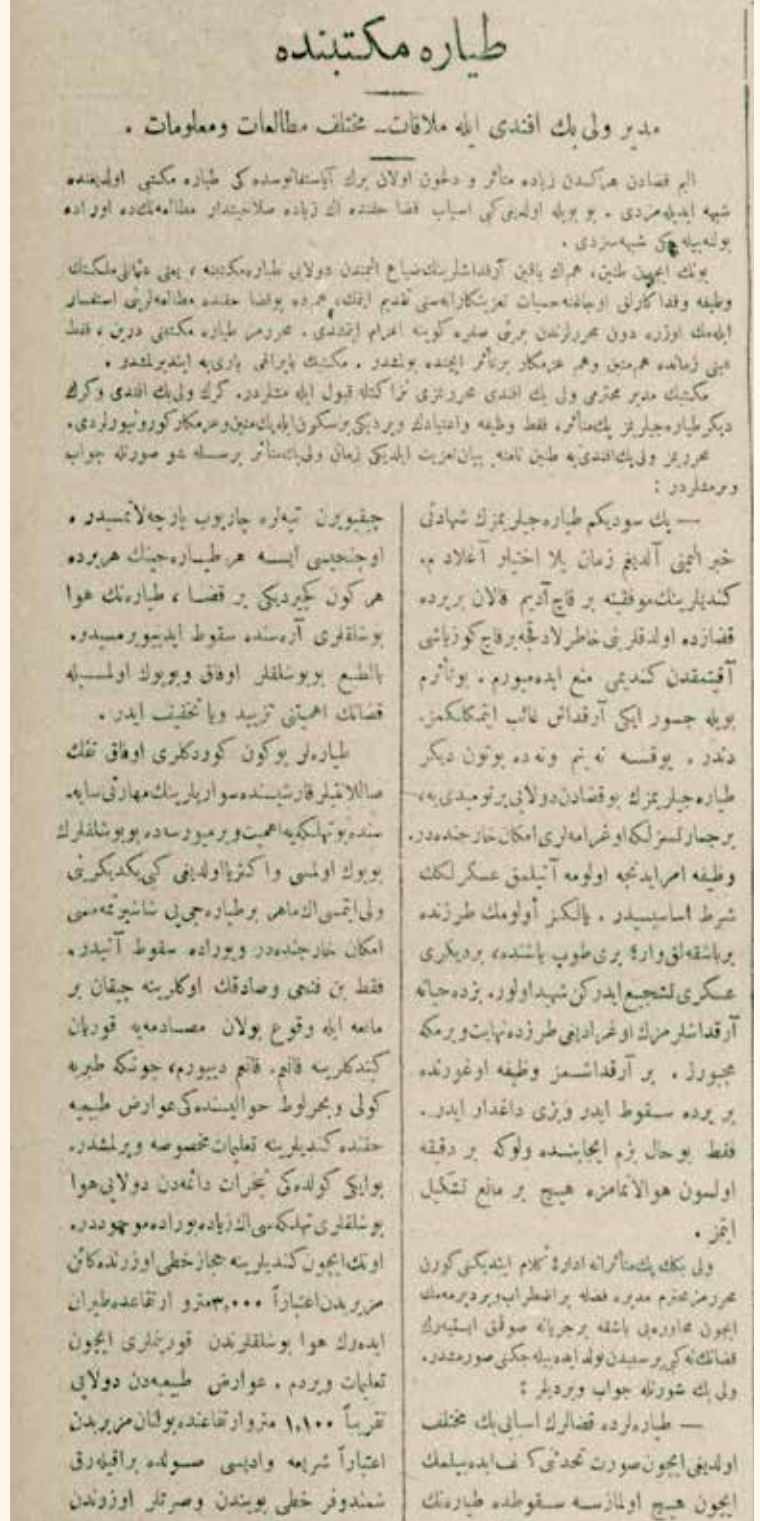 طياره مكتبنده
مدير ولی بك افندی ايله ملاقات ـ مختلف مطالعات ومعلومات .
اليم قضادن هركسدن زياده متأثر و دلخون اولان برك آياستفانوسده كی طياره مكتبی اولديغنده
شبهه ايديله مزدی . بو بويله اولديغی كبی اسباب قضا حقنده اك زياده صلاحيتدار مطالعه نك ده اوراده
بولنه بيله جكی شبهه سزدی .
بونك ايچون طنين، هم اك ياقين آرقداشلرينك ضياع اليمندن دولايی طياره مكتبنه ، يعنی عثمانلی ملكتنك
وظيفه وفداكارلق اوجاغنه حسيات تعزيتكارانه سنی تقديم ايتمك، هم ده بوقضا حقنده مطالعه لرينی استفسار
ايله مك اوزره دون محررلرندن برينی صفره كوينه اعزام ايتمشدی . محررمز طياره مكتبنی درين ، فقط
عينی زمانده هم متين وهم عزمكار برتأثر ايچنده بولمشدر . مكتبك بايراغی ياری يه ايندير لمشدر .
مكتبك مدير محترمی ولی بك افندی محررمزی نزاكتله قبول ايله مشلردر. كرك ولی بك افندی وكرك
ديكر طياره جيلريمز پك متأثر، فقط وظيفه واعتيادك ويرديكی برسكون ايله پك متين وعزمكار كورونيورلردی.
محرريمز ولی بك افندی يه طنين نامنه بيان تعزيت ايله ديكی زمان ولی بك متأثر برسسله شو صورتله جواب
ويرمشلردر :
— پك سوديكم طياره جيلريمزك شهادتی
خبر اليمنی آلديغم زمان بلا اختيار آغلادم.
كنديلرينك موفقيته بر قاچ آديم قالان بريرده
قضازده اولدقلرينی خاطرلادقجه برقاچ كوزياشی
آقيتمقدن كنديمی منع ايده ميورم . بو تأثرم
بويله جسور ايكی آرقداش غائب ايتمكلكمز.
دندر . يوقسه نه بنم ونه ده بوتون ديكر
طياره جيلريمزك بوقضادن دولايی برنوميدی يه،
برجسارتسزلكه اوغرامه لری امكان خارجنده در.
وظيفه امر ايدنجه اولومه آتيلمق عسكرلكك
شرط اساسيسيدر . يالكز أولومك طرزنده
برباشقه لق وار : بری طوپ باشنده، برديكری
عسكری تشجيع ايدركن شهيد اولور. بزده حياته
آرقداشلرمزك اوغراديغی طرزده نهايت ويرمكه
مجبورز . بر آرقداشمز وظيفه اوغورنده
بر يرده سقوط ايدر وبزی داغدار ايدر.
فقط بوحال بزم ايجابنده ولوكه بر دقيقه
اولسون هوالانمامزه هيچ بر مانع تشكيل
ايتمز .
ولی بكك پك متأثرانه ادارۀ كلام ايتديكنی كورن
محررمز محترم مديره فضله بر اضطراب ويرديرمه مك
ايچون محاوره يی باشقه برجريانه صوقمق ايستيه رك
قضانك نه كبی برسببدن تولد ايده بيله جكنی صورمشدر.
ولی بك شو صورتله جواب ويرديلر :
— طياره لرده قضالرك اسبابی پك مختلف
اولديغی ايچون صورت تحدثنی كشف ايده بيلمك
ايچون هيچ اولمازسه سقوطده طياره نك
چيقيويرن تپه لره چارپوب پارچه لانمسيدر .
اوچنجيسی ايسه هر طياره جينك هريرده
هر كون كچيرديكی بر قضا ، طياره نك هوا
بوشلقلری آره سنده سقوط ايديويرمسيدر.
بالطبع بوبوشلقلر اوفاق وبويوك اولمسيله
قضانك اهميتنی تزييد ويا تخفيف ايدر .
طياره لر بوكون كوردكلری اوفاق تفك
صاللانتيلر قارشيسنده سواريلرينك مهارتی سايه.
سنده بوتهلكه يه اهميت ويرميورسه ده بوبوشلقلرك
بويوك اولمسی واكثريا اولديغی كبی يكديكرينی
ولی ايتمسی اك ماهر برطياره جی يی شاشيرتمه مسی
امكان خارجنده در وبوراده سقوط آنيدر.
فقط بن فتحی وصادقك اوكلرينه چيقان بر
مانعه ايله وقوع بولان مصادمه يه قوربان
كيتدكلرينه قانعم. قانعم دييورم، چونكه طبريه
كولی وبحرلوط حواليسنده كی عوارض طبيعيه
حقنده كنديلرينه تعليمات مخصوصه ويرلمشدر.
بوايكی كولده كی تبخرات دائمه دن دولايی هوا
بوشلقلری تهلكه سی اك زياده بوراده موجوددر.
اونك ايچون كنديلرينه حجاز خطی اوزرنده كائن
مزيريبدن اعتباراً ۳٫۰۰۰ مترو ارتفاعده طيران
ايده رك هوا بوشلقلرندن قورتملری ايچون
تعليمات ويردم . عوارض طبيعيه دن دولايی
تقريباً ۱٫۱۰۰ مترو ارتفاعنده بولنان مزيريبدن
اعتباراً شريعه واديسی صولده براقيله رق
شمندوفر خطی بويندن وصرتلر اوزرندن